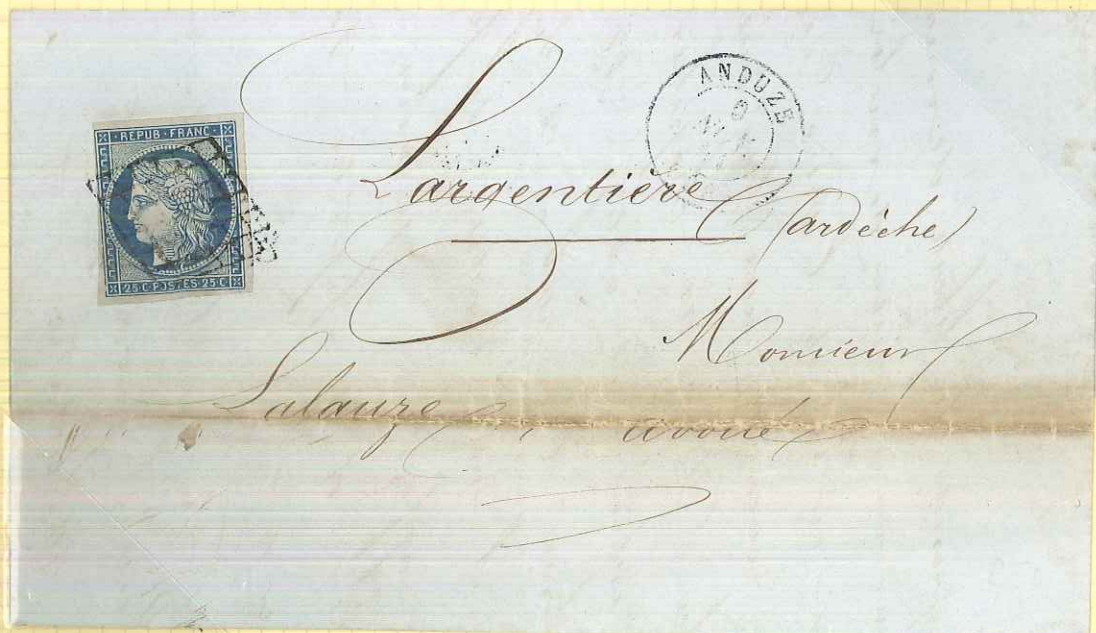 REPUB·FRANC·
25 C·POSTES·25 C
ANDUZE
Largentière (ardèche)
Monsieur
Lalauze avoué